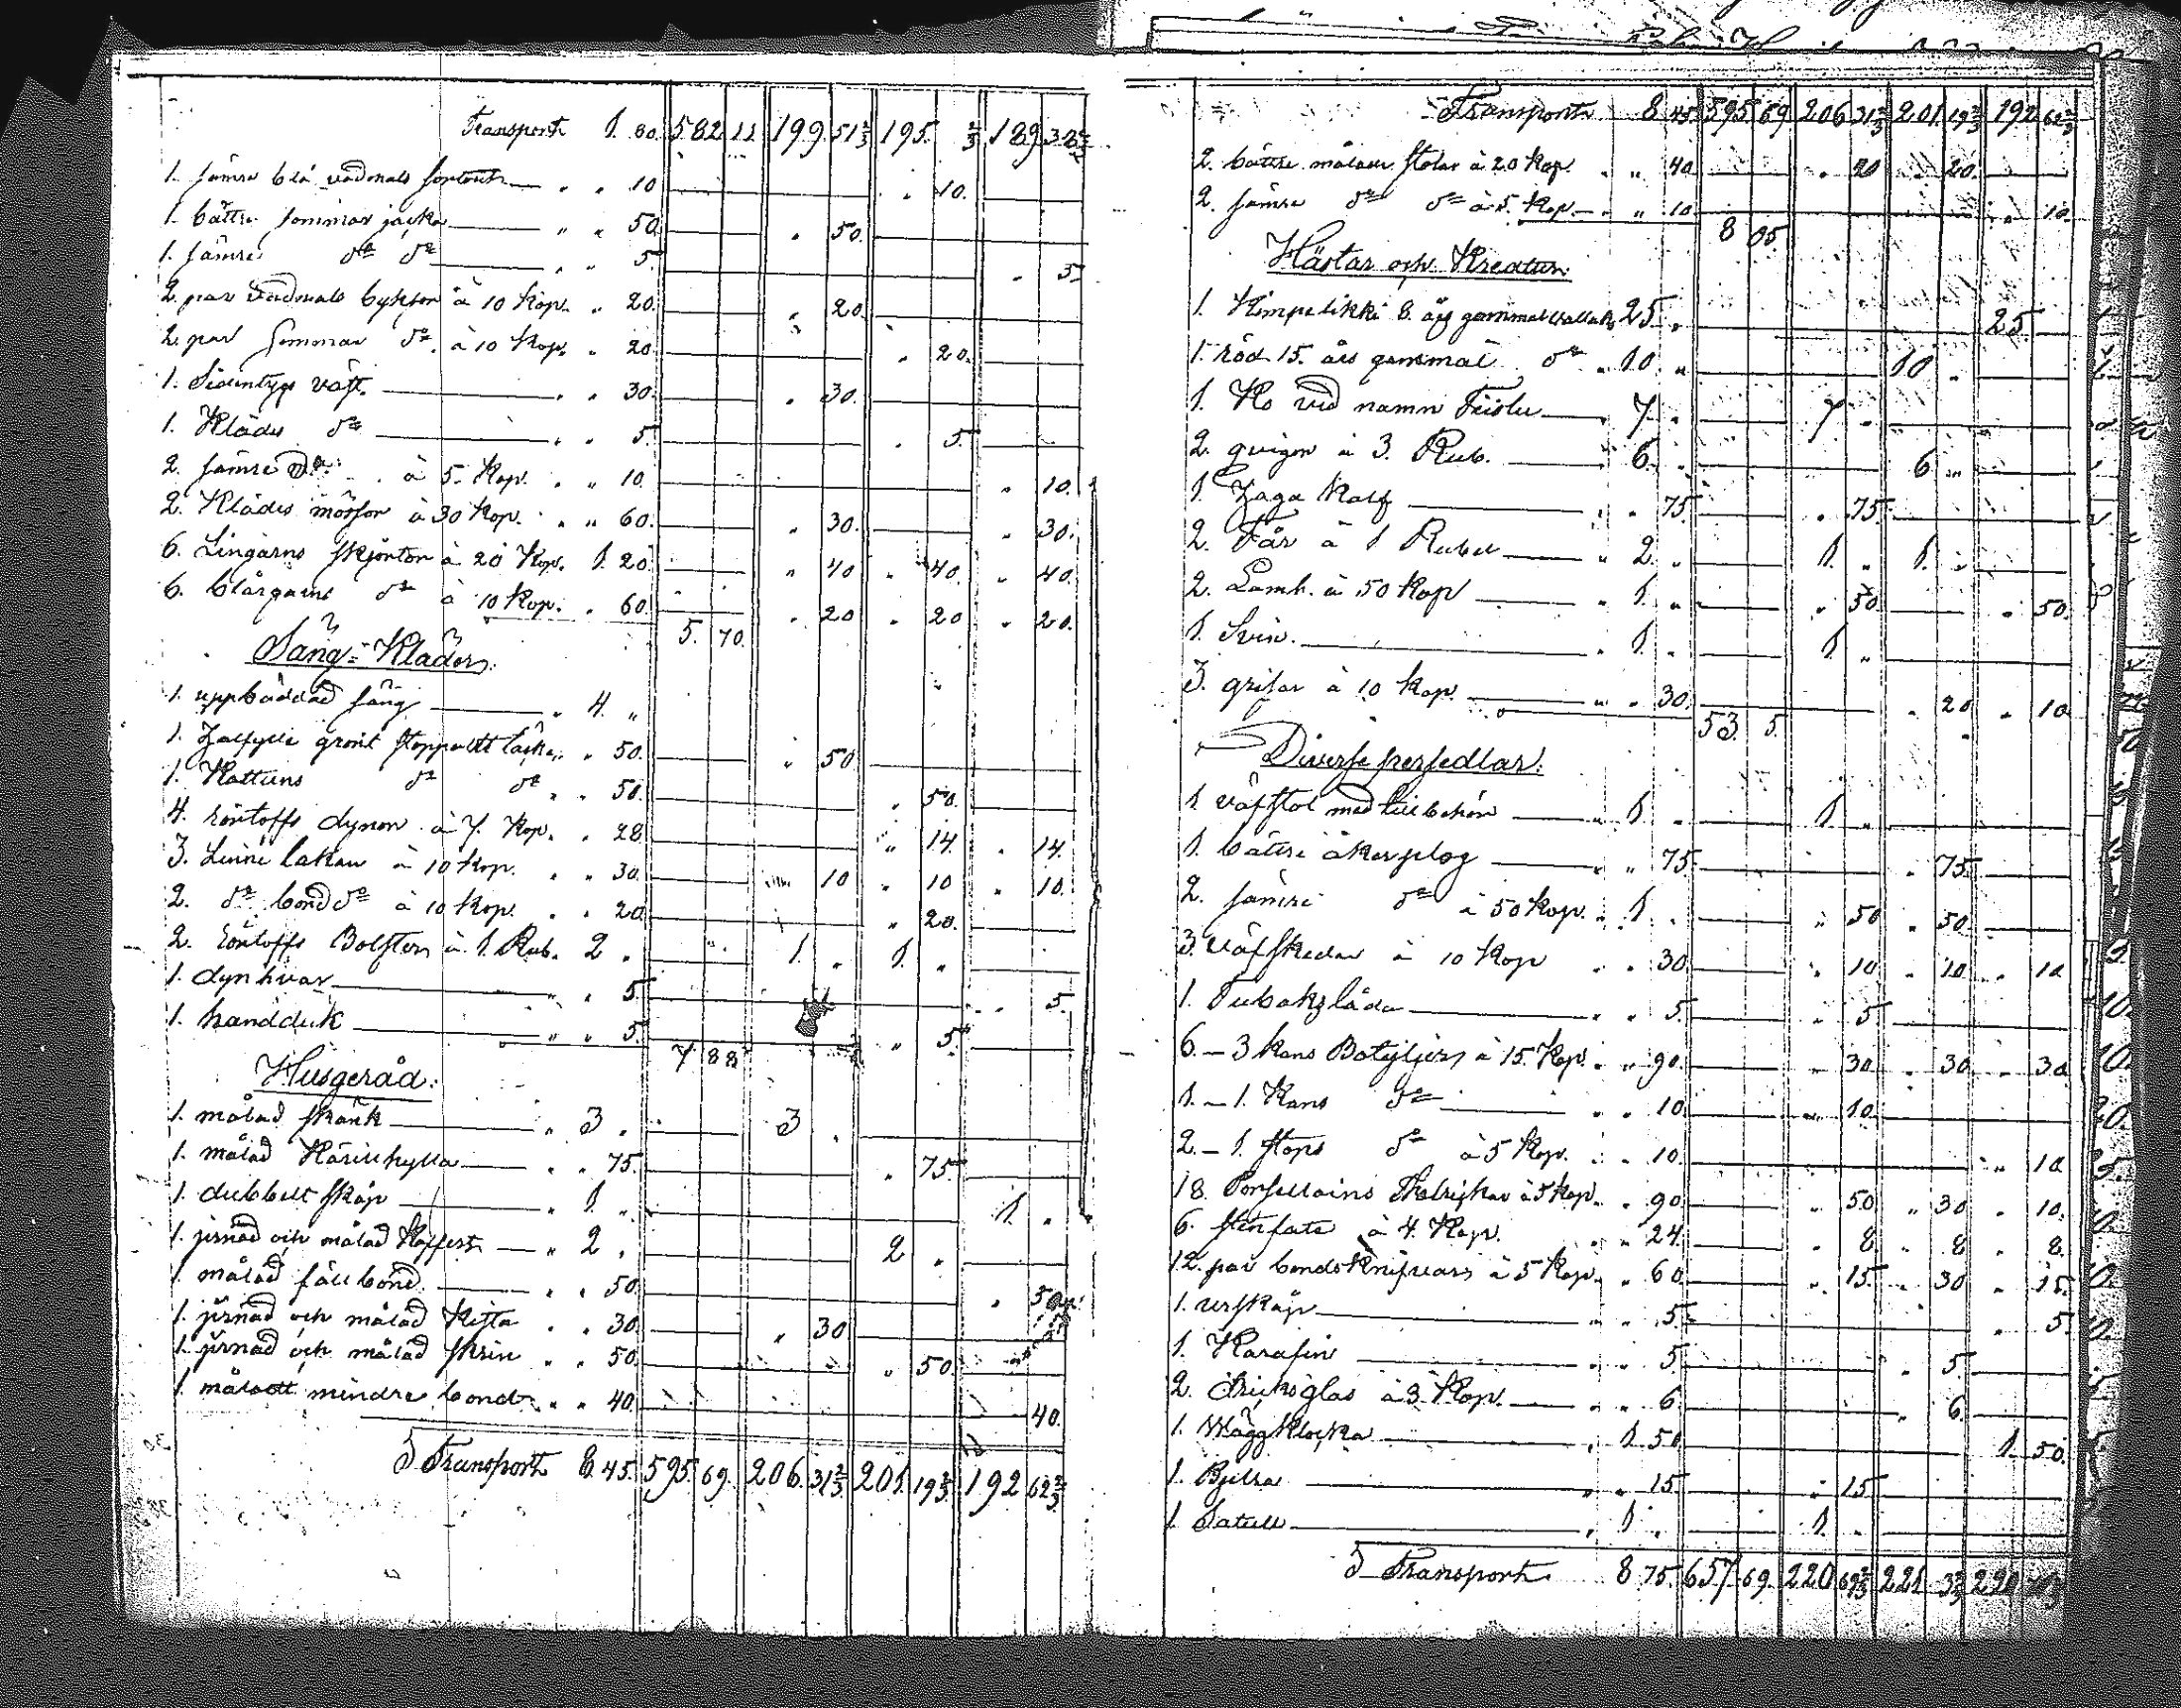 Transport 1. 80. 582 12 199. 51 2/3 195. 2/3 189 32 2/3
1. sämre blå vadmals sortout " " 10 " 10.
1. bättre sommar jacka " " 50. " 50.
1. sämre dº dº " " 5. " 5
2. par vadmals byksor à 10 kop. " 20. " 20.
2. par sommar dº à 10 kop. " 20 " 20.
1. Sidentygs väst. " " 30. " 30.
1. Klädes dº " " 5 " 5.
2. sämre dº à 5. kop. " " 10. " 10.
2. Klädes mössor à 30 kop. " " 60. " 30. " 30.
6. Lingarns skjortor à 20 kop. 1. 20. " 40 " 40. " 40
6. blårgarns dº à 10 kop. " 60. 5. 70. " 20 " 20 " 20.
Säng-Kläder.
1. uppbäddad säng " 4. "
1. grönt stoppadt täcke " " 50. " 50
1. Kattuns dº dº " " 50. " 50.
4. dynor à 7. kop. " 28 " 14. " 14.
3. Linne lakan à 10 kop. " " 30. " 10 " 10 " 10.
2. dº bond dº à 10 kop. " " 20. " 20.
2. Bolster à 1. Rub. 2 " 1. " 1. "
1. dynhvar " " 5. " 5.
1. handduk " " 5. 7 88 " 5.
Husgeråd.
1. målad skänk " 3 " 3 "
1. målad hylla " " 75. " 75.
1. dubbelt skåp " 1. " 1. "
1. jernad och målad " 2 " 2 "
1. målad fäll bord " " 50. " 50.
1. jernad och målad kista " " 30. " 30
1. jernad och målad skrin " " 50. " 50.
1. måladt mindre bord " " 40. 40.
Transport 8. 45. 595. 69. 206. 31 2/3 201. 19 2/3 192 62 2/3
Transport 8 45. 595 69 206 31 2/3 201 19 2/3 192 62 2/3
2. bättre målade stolar à 20 kop. " " 40. " 20 " 20.
2. sämre dº dº à 5. kop. " " 10. 8 95. " 10.
Hästar och Kreatur.
1. 8. års gammal vallack 25. " 25
1. röd 15. års gammal dº " 10. " 10 "
1. Ko vid namn " 7. " 7 "
2. qvigor à 3. Rub. " 6. " 6 "
1. kalf " " 75. " 75.
2. Får à 1 Rubel " 2. " 1. " 1. "
2. Lamb. à 50 kop " 1. " " 50. " 50.
1. Svin. " 1. " 1. "
3. grisar à 10 kop. " " 30. 53. 5. " 20 " 10
Diverse persedlar.
1. väfstol med tillbehör " 1. " 1. "
1. bättre åkerplog " " 75. " 75.
2. sämre dº à 50 kop. " 1. " " 50 " 50.
3. väfskedar à 10 kop " " 30. " 10 " 10 " 10
1. Tobakslåda " " 5. " 5
6. – 3 kans Boteljer à 15. kop. " " 90. " 30 " 30 " 30
1. – 1. kans dº " " 10. " 10.
2. – 1. stops dº à 5 kop. " " 10. " 10
18. Porsellains à 5 kop. " 90. " 50 " 30 " 10.
6. stenfate à 4. kop. " " 24. " 8 " 8 " 8.
12. par bordsknifvar à 5 kop. " " 60. " 15. " 30 " 15.
1. urskåp " " 5. " 5.
1. Karafin " " 5. " 5
2. dricksglas à 3. kop. " " 6. " 6.
1. Väggklocka " 1. 50. 1. 50.
1. " " 15. " 15
1. " 1. " 1. "
Transport 8 75. 657. 69. 220 69 2/3 221. 3 2/3